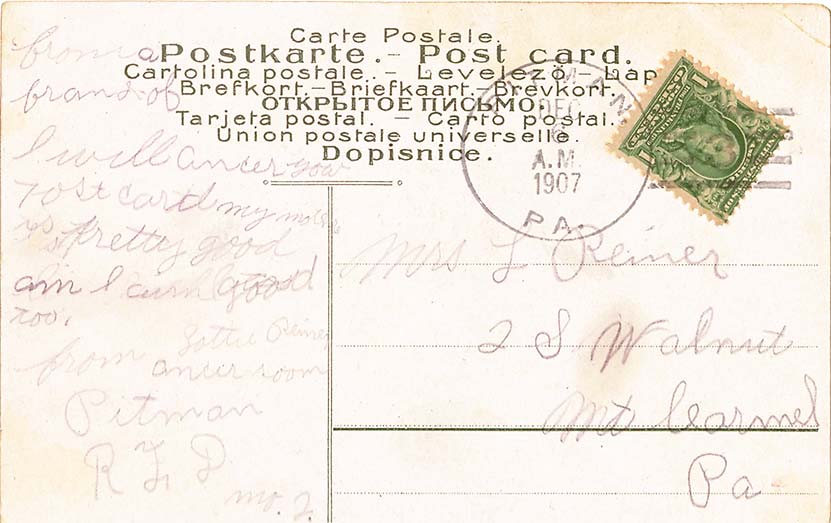 Carte Postale.
Postkarte. – Post card.
Cartolina postale. – Levelezö-Lap
Brefkort.–Briefkaart.–Brevkort.
ОТКРЫТОЕ ПИСЬМО.
Tarjeta postal. – Carto postal.
Union postale universelle.
Dopisnice.
PITMAN.
DEC
6
A.M.
1907
PA.
1
1
from a
frand of
I will ancer you
Post card my mother
is pretty good
am I aum good
too,
from Lottie Reiner
ancer soon
Pitman
R. F. D.
no. 2.
Mrs L Reiner
2 S Walnut
Mt Carmel
Pa